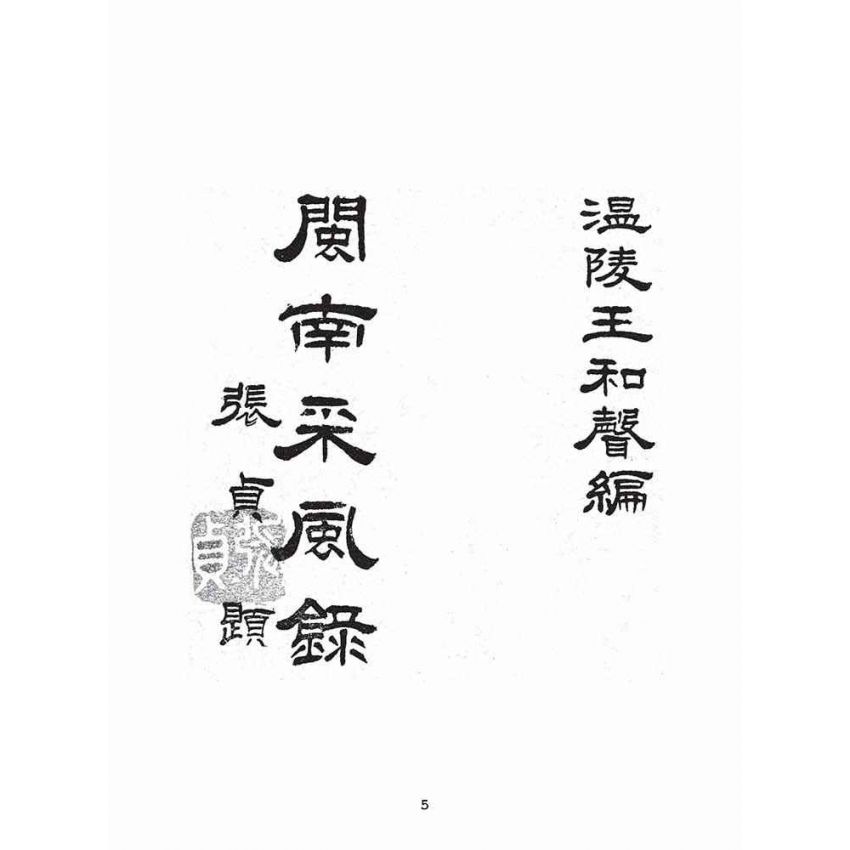 温陵王和聲編
閩南采風錄
張貞題
張貞
5